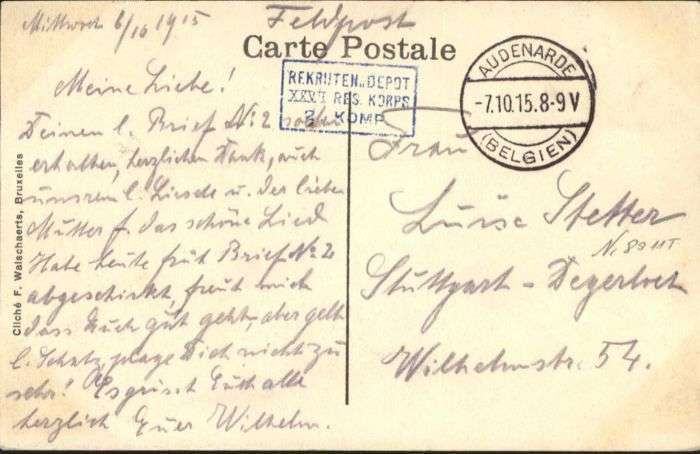 Mittwoch 6/10 1915
Feldpost
Carte Postale
REKRUTEN-DEPOT
XXVI RES. KORPS
2. KOMP.
AUDENARDE
-7.10.15.8-9V
(BELGIEN)
Meine Liebe!
Deinen l. Brief No 2 soeben
erhalten, herzlichen Dank, auch
unsrem l. Liesele u. der lieben
Mutter f. das schöne Lied
Habe heute früh Brief No 2
abgeschickt, freut mich
dass Euch gut geht, aber gelt
l. Schatz, plage Dich nicht zu
sehr! Es grüsst Euch alle
herzlich Euer Wilhelm.
Frau
Luise Stetter
Stuttgart-Degerloch
Wilhelmstr. 54.
Cliché F. Walschaerts, Bruxelles